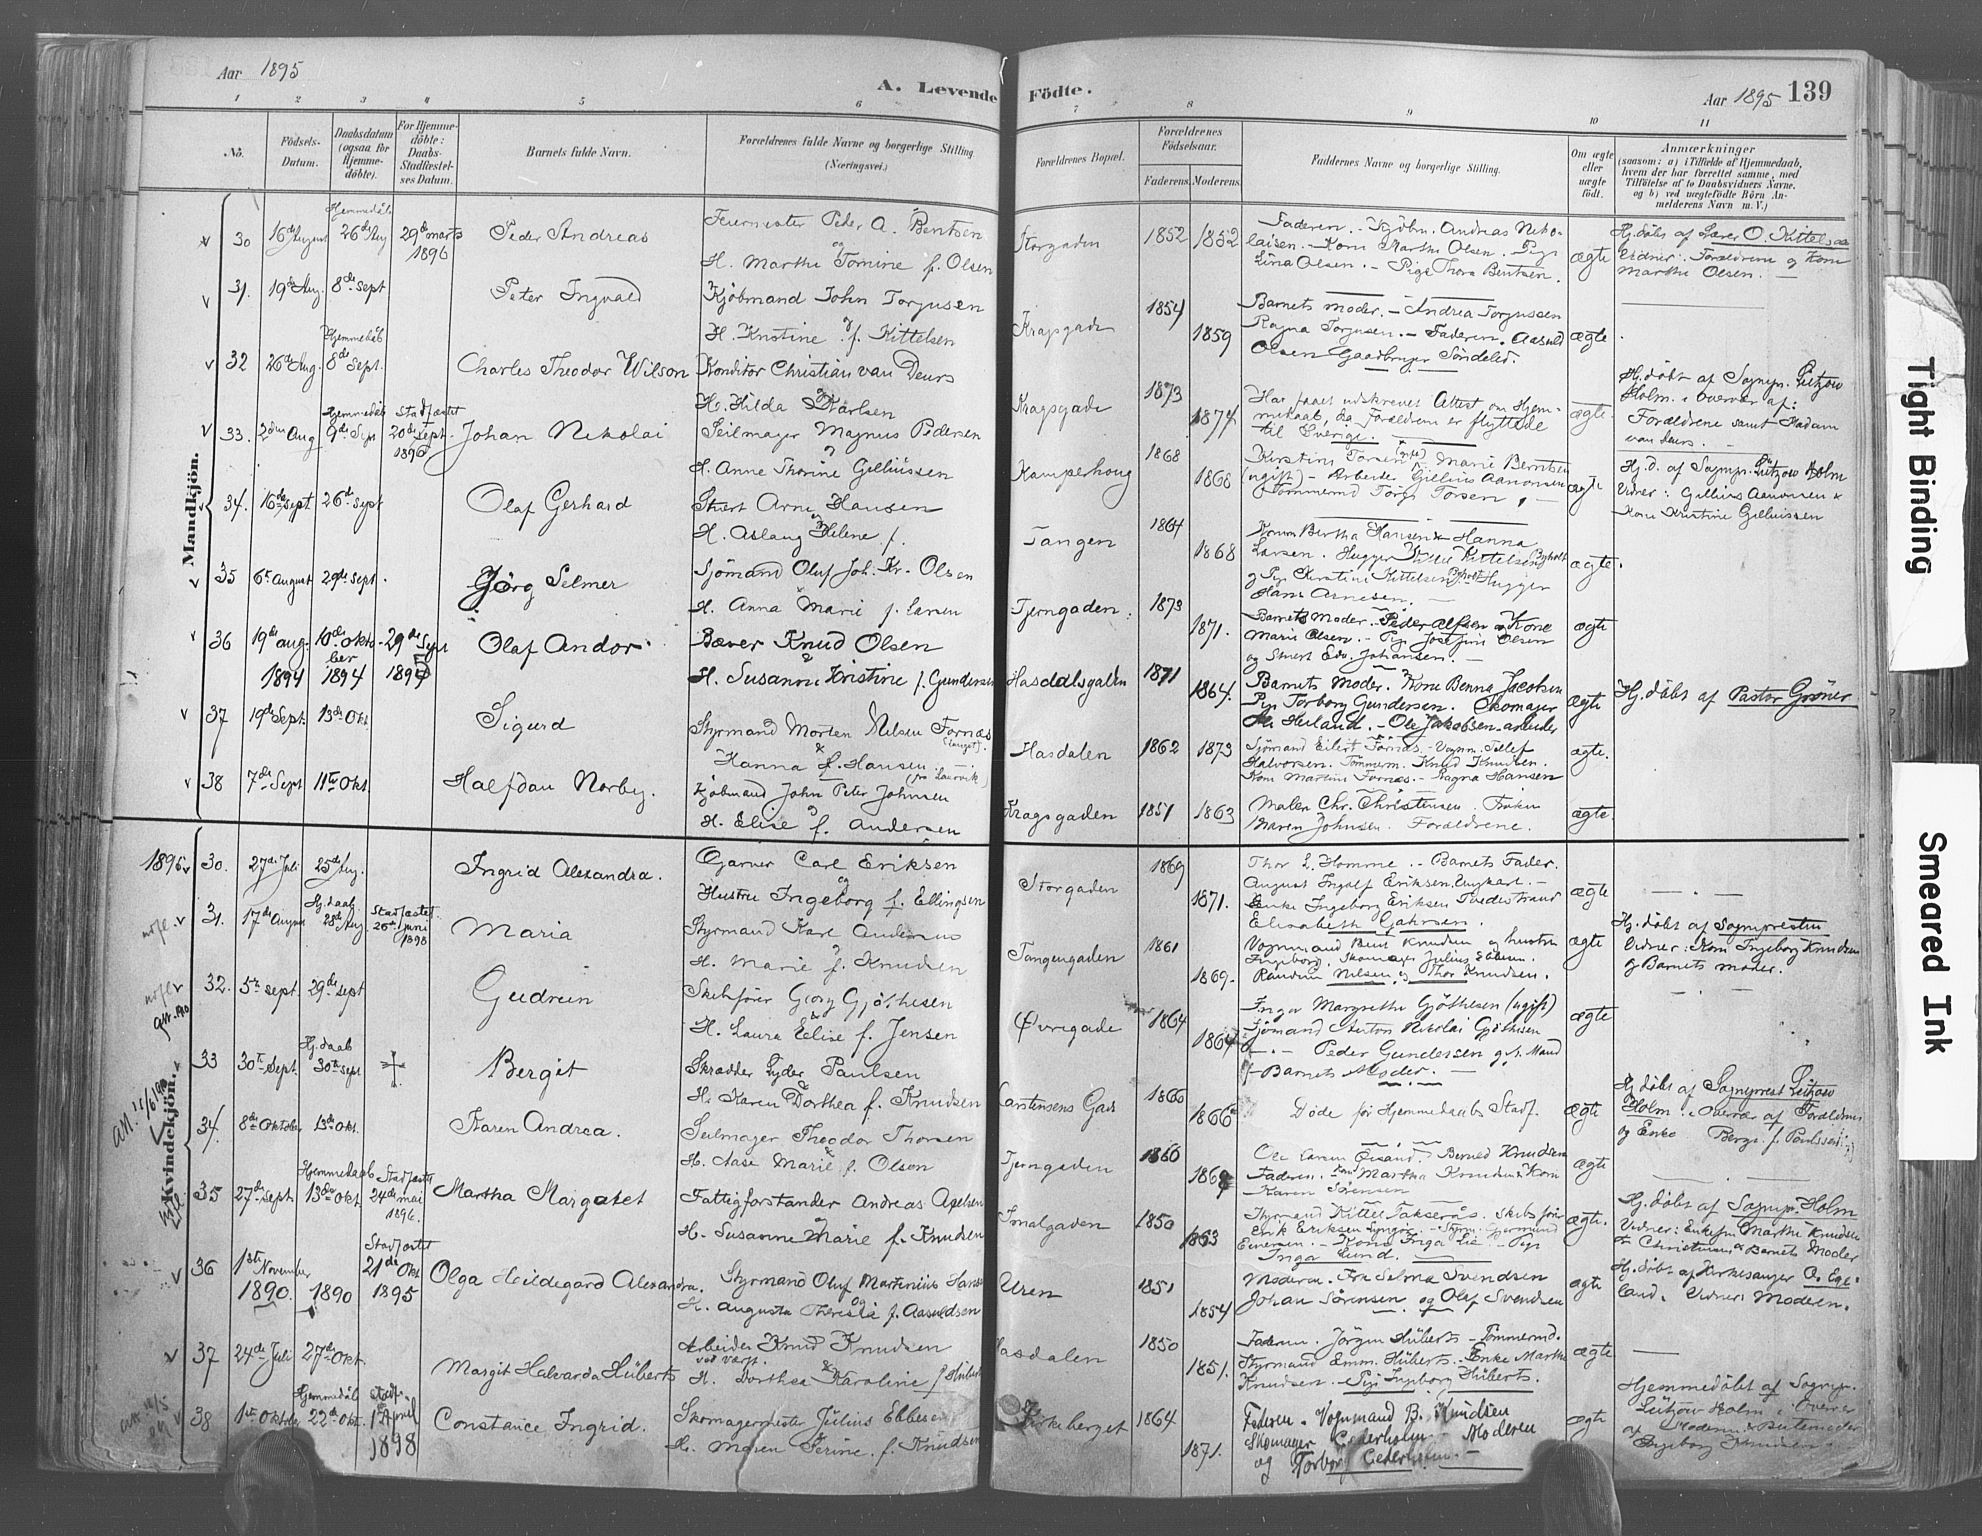 Aar 1895
A. Levende Fødte.
Aar 1895 139
1 2 3 4 5 6 7 8 9 10 11
No.
Fødsels-Datum.
Daabsdatum (ogsaa for Hjemmedøbte).
For Hjemmedøbte: Daabs-Stadfæstelses Datum.
Barnets fulde Navn.
Forældrenes fulde Navne og borgerlige Stilling (Næringsvei.)
Forældrenes Bopæl.
Forældrenes Fødselsaar.
Faderens. Moderens.
Faddernes Navne og borgerlige Stilling.
Om ægte eller uægte født.
Anmærkninger
(saasom: a) i Tilfælde af Hjemmedaab,
hvem der har forrettet samme, med
Tilføielse af to Daabsvidners Navne,
og b) ved uægtefødte Børn Anmelderens Navn m. V.)
Mandkjøn.
30 16de August Hjemmedøb 26de Aug 29de marts 1896 Peder Andreas
Peder A. Bentsen
og
H. Marthe Tomine f. Olsen
Storgaden 1852 1852
Faderen. Andreas Nikolaisen. Kone Marthe Olsen. Pige
Lina Olsen. Pige Thora Bentsen.
ægte
Hj. døbt af Lærer O. Kittelsen
Vidner: Forældrene og Kone
Marthe Olsen.
31. 19de Aug. 8de Sept Peter Ingvald
Kjøbmand John Torjusen
H. Kristine f. Kittelsen
Kragsgade 1854 1859
Barnets moder. Andrea Torjussen
Ragna Torjusen. Faderen. Aasuld
Olsen Gaardbruger Søndeled.
ægte
32 26de Aug. Hjemmedøb 8de Sept. Charles Theodor Wilson
Konditor Christian van Deurs
H. Hilda Karlsen
Kragsgade 1873 1874
Har faaet udskrevet Attest om Hjemmedaab, da Forældrene er flyttede
til Sverige.
ægte.
Hj. døbt af Sognepr. Lützow
Holm. i Overvær af:
Forældrene samt Madam
van Deurs.
33. 2den Aug Hjemmedøb 9de Sept Stadfæstet 20de Sept. 1896 Johan Nikolai
Seilmager Magnus Pedersen
H. Anne Thorine Gelliussen
Kamperhoug 1868 1868
Marie Berntsen
(ugift) Arbeider Gellius Aanonsen
Tømmermd
ægte
Hj. d. af Sognepr. Lützow Holm
Vidner: Gellius Aanonsen &
Kone Kristine Gelliussen
34. 16de Sept 26de Sept Olaf Gerhard
Stuert Arne Hansen
og
H. Aslaug Helene f.
Tangen 1864 1868
Kone Bertha Hansen & Hanna
Larsen. Hugger Kittelsen
og Pige Kirstine Kittelsen Hugger
Hans Arnesen.
ægte.
35 6te August 29de Sept. Jørg Selmer
Sjømand Oluf Joh. Kr. Olsen
H. Anna Marie f. Larsen
Tjerngaden. 1873 1871.
Barnets Moder. Peder Alfsen og Kone
Marie Olsen. Pige Josefine Olsen
og Stuert Edv. Johansen.
ægte
36 19de aug. 1894 10de Oktober 1894 29de Sept 1895 Olaf Andor
Bæver Knud Olsen
H. Susanne Kristine f. Gundersen
Hasdalsgaden 1871 1864.
Barnets Moder. Kone Benna Jacobsen
Pige Torborg Gundersen. Skomager
Heiland. Ole Jakobsen arbeider
ægte
Hj. døbt af Pastor Grøner
37 19de Sept. 13de Okt Sigurd
Styrmand Morten Nilsen Fornæs
H Hanna f. Hansen
(fra Laurvik)
Hasdalen 1862 1873
Sjømand Eilert Fornæs. Vognm. Tellef
Halvorsen. Tømmerm. Knud Knudsen.
Kone Martine Fornæs. Ragna Hansen
ægte.
38 7de Sept 11te Okt. Halfdan Norby.
Kjøbmand John Peter Johnsen
H. Elise f. Andersen
Kragsgaden 1851 1863
Maler Chr. Christensen. Frøken
Maren Johnsen. Forældrene.
ægte.
Kvindekjøn.
1895 30. 27de Juli 25de Aug. Ingrid Alexandra.
Garver Carl Eriksen
og
Hustru Ingeborg f. Ellingsen
Storgaden 1869 1871.
Thor L. Homme. Barnets Fader.
August Ingolf Eriksen, Ungkarl.
Enke Ingeborg Eriksen Tvedestrand
Elisabeth
ægte
31. 17de August Hj. daab 28de Aug Stadfæstet 26de juni 1898 Maria
Styrmand Karl Andersen
H. Marie f. Knudsen
Tangengaden 1861 1869.
Vognmand Bent Knudsen og hustru
Ingeborg. Skomager Julius Ebbesen.
Randine Nilsen og Thor Knudsen.
ægte
Hj. døbt af Sognepresten
Vidner: Kone Ingeborg Knudsen
og Barnets moder.
32. 5te Sept. 29de Sept Gudrun
Skibsfører Georg Gjøthesen
H. Laura Elise f. Jensen
Øvregade 1864 1864
Inger Margrethe Gjøthesen (ugift)
Sjømand Anton Nikolai Gjøthesen
Peder Gundersen
Barnets Moder.
ægte
33 30te Sept. Hj. daab 30te Sept Bergit
Skrædder Lyder Paulsen
H. Karen Dorthea f. Knudsen
Carstensens Gade 1866 1866
Døde før Hjemmedaabs Stadf.
ægte
Hj døbt af Sogneprest Lützow
Holm i Overvær af Forældrene
og Enke Berge f. Paulssen
34. 8de Oktober 13de Okt. Karen Andrea.
Seilmager Theodor Thorsen
H. Aase Marie f. Olsen
Tjerngaden 1860
Berned Knudsen
Faderen. Martha Knudsen & Kone
Karen Sørensen
ægte
35 27de Sept Hjemmedaab 13de Okt Stadfæstet 24de mai 1896. Martha Margaret
Fattigforstander Andreas Axelsen
H. Susanne Marie f. Knudsen
Smalgaden 1850 1863
Styrmand Kittel Skibsfører
Erik Eriksen Lyngør.
Kone Inga Lie Pige
Inga Lund.
ægte.
Hj. døbt af Sognepr. Holm
Vidner: Enkefru Marthe Knudsen
Christensen & Barnets Moder
36 1ste November 1890. 1890 Stadfæstet 21de Okt 1895 Olga Hildegard Alexandra.
Styrmand Oluf Martinius Hansen
H. Augusta Theresia f. Aasuldsen
Uren 1851 1854
Moderen. Frk Selma Svendsen
Johan Sørensen og Olaf Svendsen
ægte
Hj. døbt af Kirkesanger O. Egeland. Vidner: Moderen.
37 24de Juli 27de Okt. Margit Halvarda Hüberts
Arbeider Knud Knudsen
ved værft.
H. Dorthea Karoline f Hüberts
Hasdalen 1850 1851.
Faderen. Jørgen Hüberts. Tømmermd.
Styrmand Emm. Hüberts. Enke Marthe
Knudsen. Pige Ingeborg Hüberts.
ægte
38 1ste Oktober Hjemmedøb 22de Okt. Stadf. 1 April 1898 Constance Ingrid.
Skomagermester Julius Ebbesen
H. Maren Serine f. Knudsen
Kirkeberget 1864 1871.
Faderen. Vognmand B. Knudsen
Skomager Cederholm Moderen
og Torborg Cederholm.
ægte
Hjemmedøbt af Sognepr.
Lützow Holm i Overvær
af Moderen & Bestemoder
Ingeborg Knudsen
Tight Binding
Smeared Ink